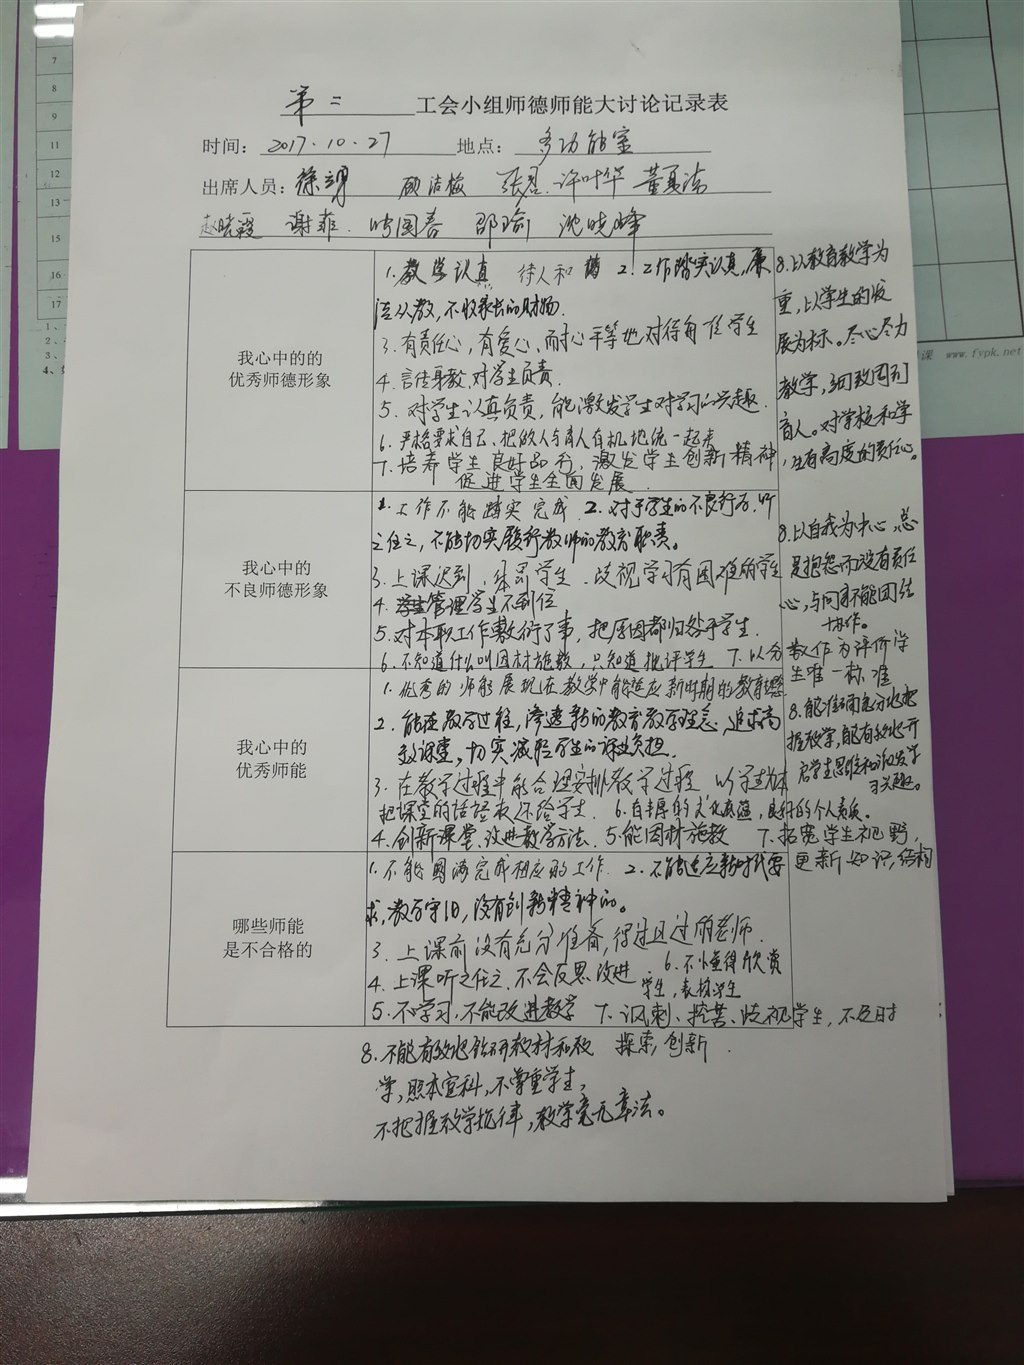 第二 工会小组师德师能大讨论记录表
时间： 2017.10.27 地点： 多功能室
出席人员： 顾洁梅 许叶华
赵晓霞 谢菲 邵瑜 沈晓峰
我心中的的
优秀师德形象
1. 教学认真 待人和蔼 2. 工作踏实认真，廉
洁从教，不收家长的财物.
3. 有责任心，有爱心、耐心平等地对待每一位学生
4. 言传身教，对学生负责.
5. 对学生认真负责，能激发学生对学习的兴趣.
6. 严格要求自己、把做人与育人有机地统一起来
7. 培养学生良好品行，激发学生创新精神，
促进学生全面发展.
8. 以教育教学为
重，以学生的发
展为标。尽心尽力
教学，细致周到
育人。对学校和学
生有高度的责任心。
我心中的
不良师德形象
1. 工作不能踏实完成 2. 对于学生的不良行为，听
之任之，不能切实履行教师的教育职责。
3. 上课迟到、体罚学生、歧视学习有困难的学生
4. 管理学生不到位
5. 对本职工作敷衍了事，把原因都归咎于学生.
6. 不知道什么叫因材施教，只知道批评学生 7. 以分数作为评价学
生唯一标准
8. 以自我为中心，总
是抱怨而没有责任
心，与同事不能团结
协作。
我心中的
优秀师能
1. 优秀的师能展现在教学中能适应新时期的教育
2. 能在教学过程，渗透新的教育教学理念，追求高
效课堂，切实减轻学生的课业负担.
3. 在教学过程中能合理安排教学过程 以学生为本
把课堂的话语权还给学生. 6. 有丰厚的文化底蕴，良好的个人素质。
4. 创新课堂、改进教学方法. 5. 能因材施教 7. 拓宽学生视野，
更新知识结构
8. 能准确充分地把
握教学，能有效地开
启学生思维和激发学
习兴趣。
哪些师能
是不合格的
1. 不能圆满完成相应的工作. 2. 不能适应新时代要
求，教学守旧，没有创新精神的。
3. 上课前没有充分准备，得过且过的老师.
4. 上课听之任之、不会反思改进 6. 不懂得欣赏
学生，表扬学生
5. 不学习，不能改进教学 7. 讽刺、挖苦、歧视学生，不及时
探索，创新.
8. 不能有效地钻研教材和教
学，照本宣科，不尊重学生，
不把握教学规律，教学毫无章法。
7
8
9
11
12
13
15
16
17
www.fvpk.net